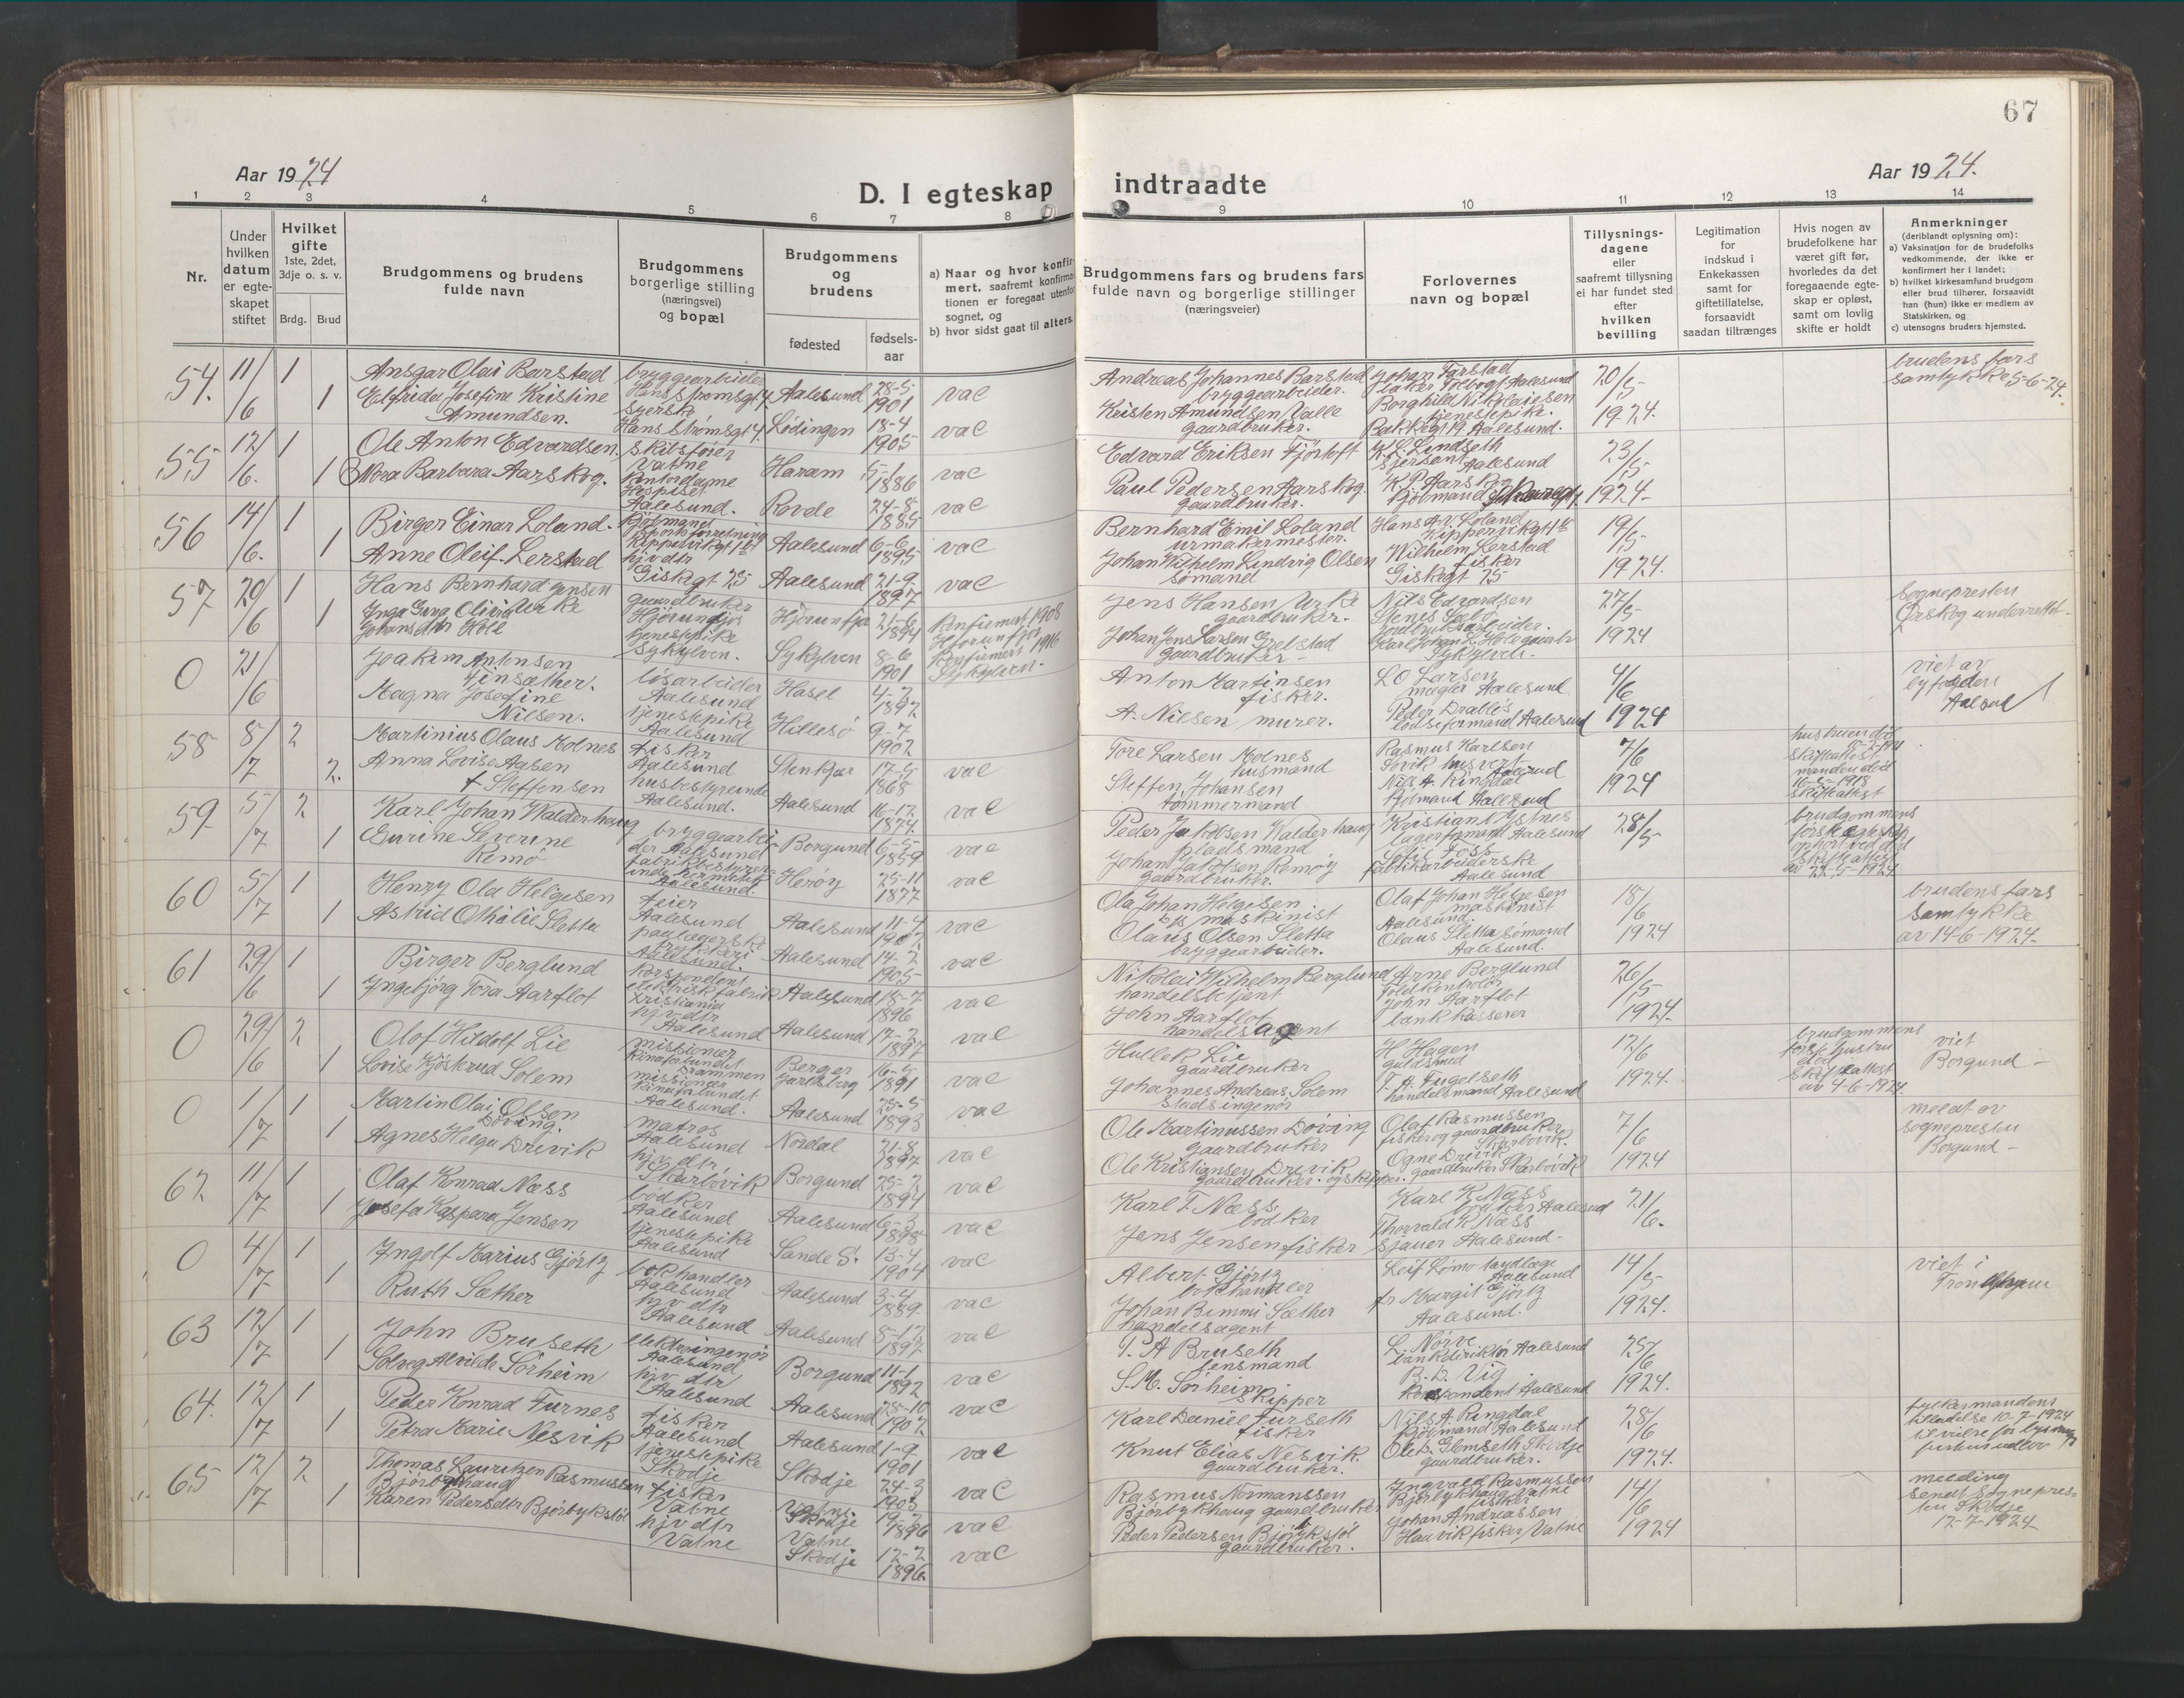 67
Aar 1924
D. I egteskap
indtraadte
Aar 1924.
1 2 3 4 5 6 7 8 9 10 11 12 13 14
Nr.
Under hvilken datum er egteskapet stiftet
Hvilket gifte
1ste, 2det, 3dje o. s. v.
Brdg. Brud
Brudgommens og brudens
fulde navn
Brudgommens
borgerlige stilling
(næringsvei)
og bopæl
Brudgommens
og
brudens
fødested
fødsels-
aar
a) Naar og hvor konfir-
mert, saafremt konfirma-
tionen er foregaat utenfor
sognet, og
b) hvor sidst gaat til alters.
Brudgommens fars og brudens fars
fulde navn og borgerlige stillinger
(næringsveier)
Forlovernes
navn og bopæl
Tillysnings-
dagene
eller
saafremt tillysning
ei har fundet sted
efter
hvilken
bevilling
Legitimation
for
indskud i
Enkekassen
samt for
giftetillatelse,
forsaavidt
saadan tiltrænges
Hvis nogen av
brudefolkene har
været gift før,
hvorledes da det
foregaaende egte-
skap er opløst,
samt om lovlig
skifte er holdt
Anmerkninger
(deriblandt oplysning om):
a) Vaksination for de brudefolks
vedkommende, der ikke er
konfirmert her i landet;
b) hvilket kirkesamfund brudgom
eller brud tilhører, forsaavidt
han (hun) ikke er medlem av
Statskirken, og
c) utensogns bruders hjemsted.
54. 11/6 1 Ansgar Olai Barstad bryggearbeider Hans Strømsgt 4. Aalesund 28-5 1901 vac Andreas Johannes Barstad bryggearbeider. Johan Farstad Aalesund 20/5 1924. brudens fars samtykke 5-6-24.
1 Elfrida Josefine Kristine Amundsen. syerske Hans Strømsgt 4. Lødingen 18-4 1905 vac Kristen Amundsen Valle gaardbruker. Borghild Nikolaisen tjenestepike. Aalesund.
55 12/6. 1 Ole Anton Edvardsen. Vatne Haram 5-1 1886 vac Edvard Eriksen Fjørtoft K. L. Lindseth Aalesund 23/5 1924.
1 Nora Barbara Aarskog. Kontordame Hospitset Aalesund. Rovde 24-8 1885 vac Paul Pedersen Aarskog. gaardbruker. K P Aarskog
56 14/6. 1 Birger Einar Loland. Kjøbmand Aalesund 6-6 1895 vac Bernhard Emil Loland urmakermester. Hans A. Loland 19/5 1924.
1 Anne Oleif. Lerstad hjv dtr Giskegt 25 Aalesund 21-9 1897 vac Johan Wilhelm Lindvig Olsen sømand Wilhelm Lerstad fisker Giskegt 25
57 20/6 1 Hans Bernhard Jensen Urke gaardbruker Hjørundfjor 21-6 1894 Konfirmert 1908 Hjørunfjor Jens Hansen Urke gaardbruker. Nils Edvardsen 27/5 1924 sognepresten Ørskog underrettet.
1 Johansdtr Hole tjenestepike Sykylven. Sykylven 8-6 1901 Konfirmert 1916 Sykylven. gaardbruker Sykylven.
0 21/6 Joakim Antonsen Finsæther. løsarbeider Aalesund Hasel 4-2 1892 Anton Martinsen fisker. L O Larsen mægler Aalesund 4/6 1924 viet av byfogden Aalesund
Magna Josefine Nilsen. tjenestepike Aalesund Hillesø 9-7 1902 A. Nilsen murer. Peder Drabløs Aalesund
58 8/7 2 Martinius Olaus Molnes fisker Aalesund Stenkjær 17-5 1868 vac Tore Larsen Molnes husmand Rasmus Karlsen 7/6 1924 hustruen død skifteattest
2. Anna Lovise Aasen f Steffensen husbestyrerinde Aalesund. Aalesund 16-12 1874 vac Steffen Johansen tømmermand Nils A. Ringdal kjøbmand Aalesund manden død 16-5-1918 skifteattest
59 5/7 2 Karl Johan Walderhaug bryggearbeider Aalesund Borgund 6-5 1859 vac Peder Jakobsen Walderhaug pladsmand Kristian Ystnes lagerformand Aalesund 28/5 brudgommens første egteskap ophørt ved død skifteattest av 22-5-1924
1 Severine Remø Aalesund. Herøy 25-11 1877 vac Johan Jakobsen Remøy gaardbruker. Foss fabrikarbeiderske Aalesund
60 5/7 1 Henry Ola Helgesen feier Aalesund Aalesund 11-4 vac Ola Johan Helgesen maskinist Olaf Johan Helgesen maskinist Aalesund. 18/6 1924 brudens fars samtykke av 14-6-1924.
1 Astrid Othalie Sletta Aalesund. Aalesund 14-2 1905 vac Olaus Olsen Sletta bryggearbeider. Olaus Sletta sømand Aalesund.
61 29/6 1 Birger Berglund korspondent elektrisk fabrik Kristiania Aalesund 18-7 1896 vac Nikolai Wilhelm Berglund handelsbetjent Arne Berglund toldkontrolør 26/5 1924.
1 Ingebjørg Tora Aarflot hjv dtr Aalesund Aalesund 17-2 1897 vac John Aarflot handelsagent John Aarflot bankkasserer
0 29/6 2 Olof Hildolf Lie missionær Kinaforbundet Drammen Berger Jarlsberg 16-5 1891 vac Hullek Lie gaardbruker H Hagen guldsmed 12/6 1924. brudgommens første hustru død skifteattest av 4-6-1924. viet Borgund
1 Lovise Kjøskrud Solem missionær Kinaforbundet Aalesund. Aalesund 25-5 1893 vac Johannes Andreas Solem stadsingenør T. A. Fugelseth handelsmand Aalesund
0 1/7 1 Martin Olai Olsen Døving. matros Aalesund Nordal 21-8 1897 vac Ole Martinussen Døving gaardbruker Olaf Rasmussen fisker og gaardbruker Skarbøvik. 7/6 1924 meldt av sognepresten Borgund
1 Agnes Helga Drevik hjv dtr, Skarbøvik Borgund 25-2 1894 vac Ole Kristiansen Drevik gaardbruker og skipper. Ogne Drevik gaardbruker Skarbøvik
62 11/7 1 Olaf Konrad Næss bødker Aalesund Aalesund 6-3 1878 vac Karl T. Næss. bødker Karl K Næss bødker Aalesund 21/6.
1 Josefa Kaspara Jensen tjenestepike Aalesund Sande S. 13-4 1904 vac Jens Jensen fisker Thorvald K Næss sjauer Aalesund
0 4/7 1 Ingolf Marius Gjørtz bokhandler Aalesund Aalesund 3-4 1889. vac Albert Gjørtz bokhandler Leif Lømo tandlæge Aalesund 14/5 1924. viet i Trondhjem
1 Ruth Sæther hjv dtr Aalesund Aalesund 8-12 1897 vac Johan Bimmi Sæther handelsagent fr Margit Gjørtz Aalesund.
63 12/7 1 John Bruseth elektroingeniør Aalesund Borgund 11-1 1892 vac P. A Bruseth lensmand L. Nørve bankdirektør Aalesund 25/6 1924.
1 Solveg Alvilde Sørheim hjv dtr Aalesund Aalesund 28-10 1902 vac S. M. Sørheim skipper B. D. Vig korspondent Aalesund
64. 12/7 1 Peder Konrad Furnes fisker Aalesund Aalesund 1-9 1901 vac Karl Daniel Furseth fisker Nils A. Ringdal kjøbmand Aalesund 28/6 1924. fylkesmandens tilladelse 10-7-1924
1 Petra Marie Nesvik tjenestepike Skodje Skodje 24-3 1903 vac Knut Elias Nesvik. gaardbruker. Ole Glomseth Skodje gaardbruker.
65 12/7 2 Thomas Lauritzen Rasmussen Bjørbykhaug fisker Vatne Vatne Skodje 1896 vac Rasmus Normanssen Bjørbykhaug gaardbruker Ingvald Rasmussen Bjørbykhaug Vatne fisker 14/6 1924 melding sendt sognepresten Skodje 12-7-1924
1 Karen Pedersdtr Bjørbykstøl hjv dtr Vatne Vatne Skodje 12-2 1896. vac Peder Pedersen Bjørbykstøl gaardbruker. Johan Andreassen Hauvik fisker Vatne